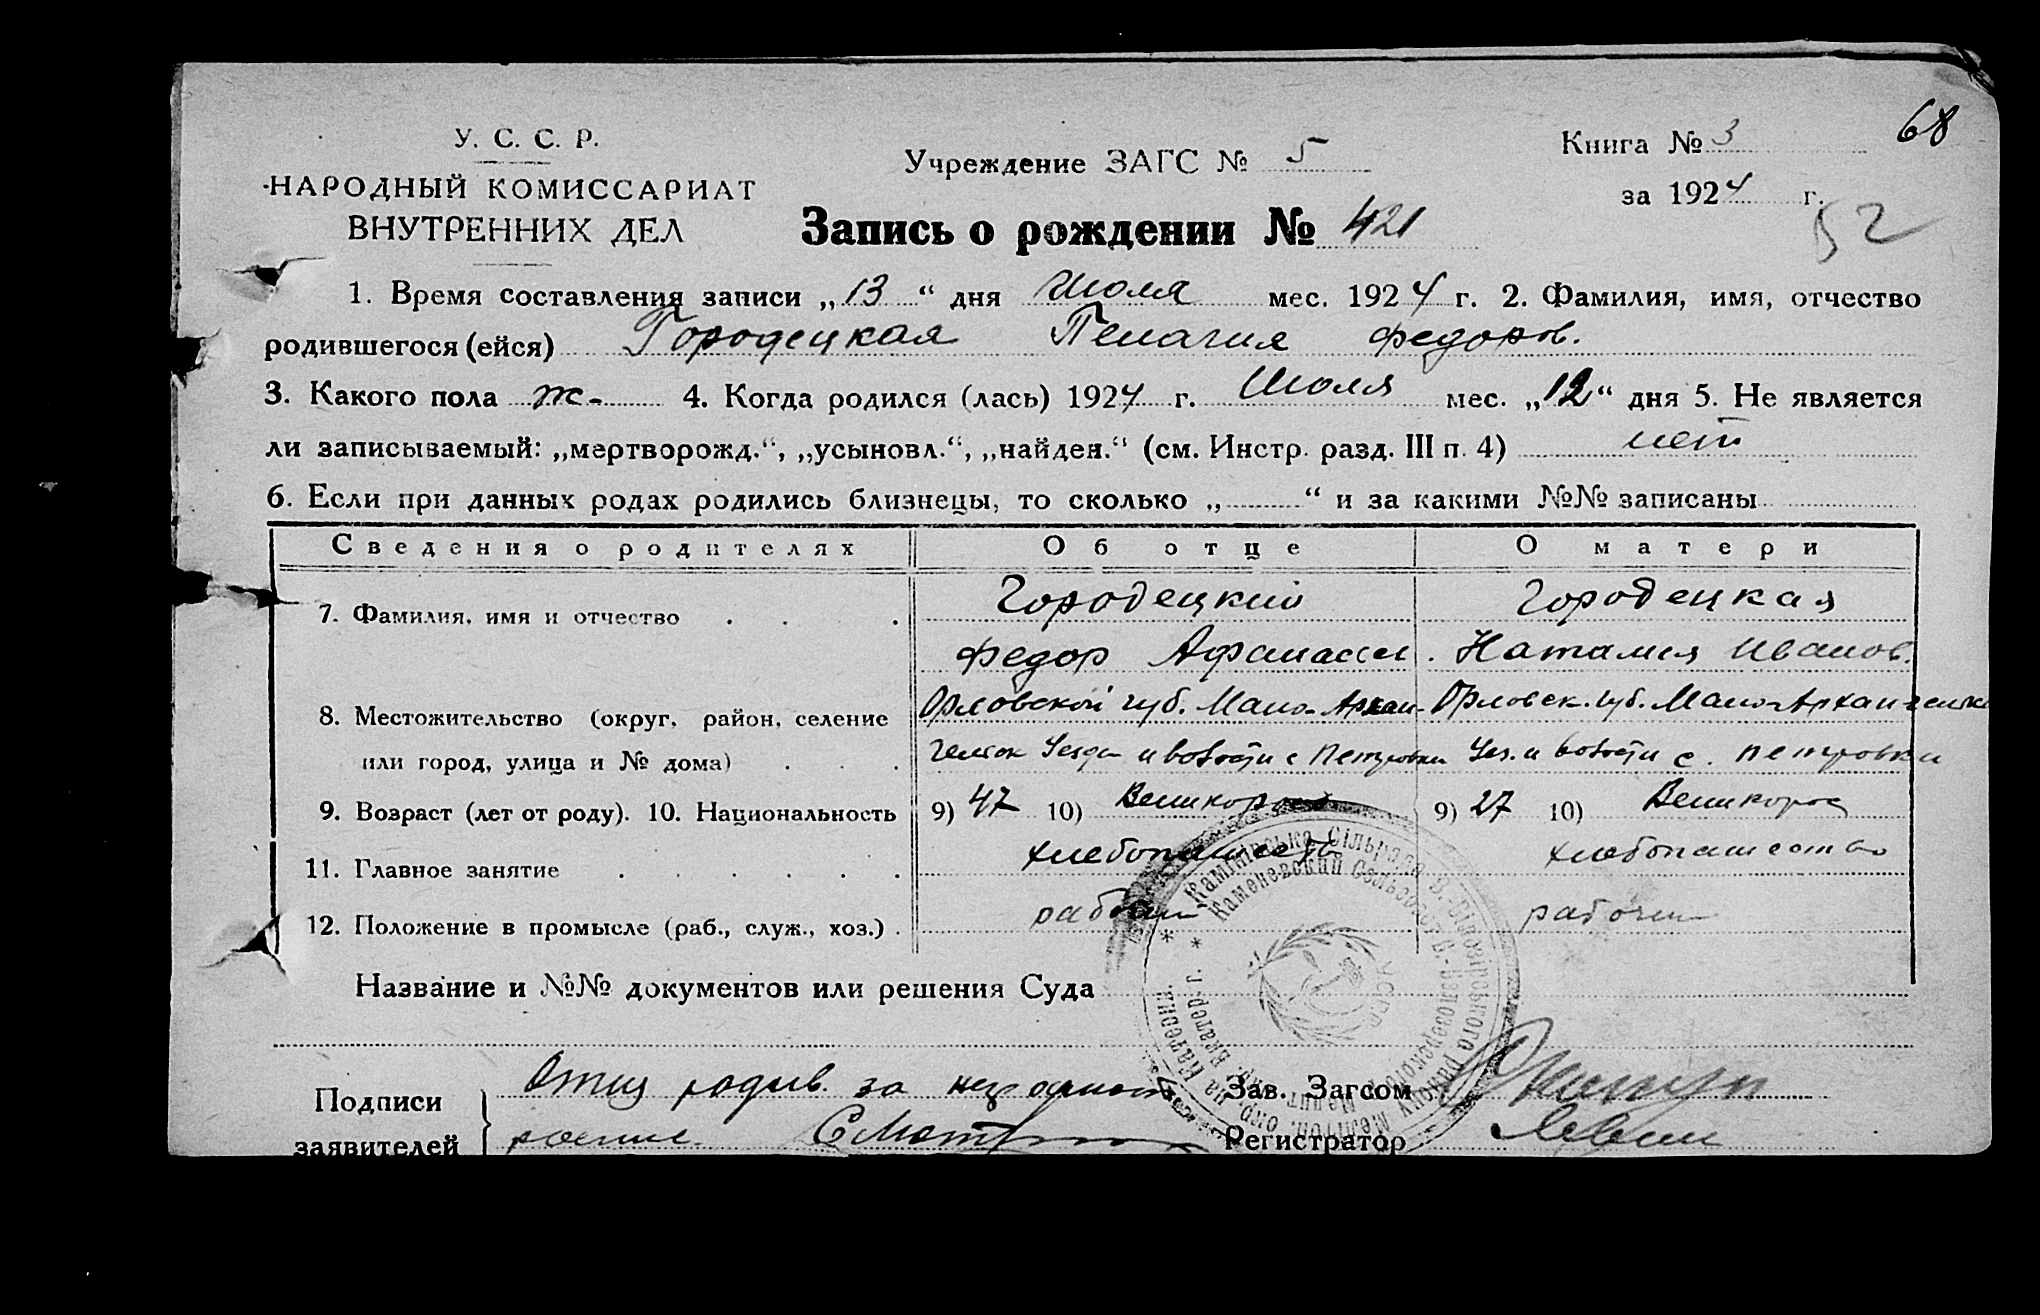 68
У. С. С. Р.
НАРОДНЫЙ КОМИССАРИАТ
ВНУТРЕННИХ ДЕЛ
Учреждение ЗАГС № 5
Книга № 3
за 1924 г.
52
Запись о рождении № 421
1. Время составления записи „13“ дня Июля мес. 1924 г. 2. Фамилия, имя, отчество
родившегося (ейся) Городецкая Пелагия Федоров.
3. Какого пола ж. 4. Когда родился (лась) 1924 г. Июля мес. „12“ дня 5. Не является
ли записываемый: „мертворожд.“, „усыновл.“, „найден.“ (см. Инстр. разд. III п. 4) нет
6. Если при данных родах родились близнецы, то сколько „ “ и за какими №№ записаны
Сведения о родителях Об отце О матери
7. Фамилия, имя и отчество Городецкий Городецкая
Федор Афанасьев. Наталия Иванов.
8. Местожительство (округ, район, селение Орловской губ. Мало-Архан- Орловск. губ. Мало-Архангельск
или город, улица и № дома) гельск Уезда и волости с Петровки Уез. и волости с. Петровки
9. Возраст (лет от роду). 10. Национальность 9) 47 10) Великоросс 9) 27 10) Великорос
11. Главное занятие хлебопашество хлебопашество
12. Положение в промысле (раб., служ., хоз.) рабочий рабочий
Название и №№ документов или решения Суда
Камінівська Сільрада В.-Білозірського району Меліт. окр. на Катеринosл.
Каменевский Сельсовет В.-Белозерского
УСРР
Подписи Отец родив. за неграмот Зав. Загсом
заявителей Регистратор